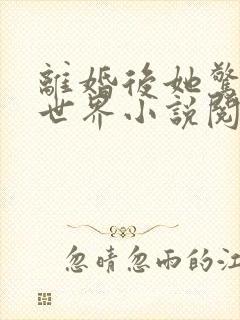 離婚後她驚
世界小說閱
忽晴忽雨的江